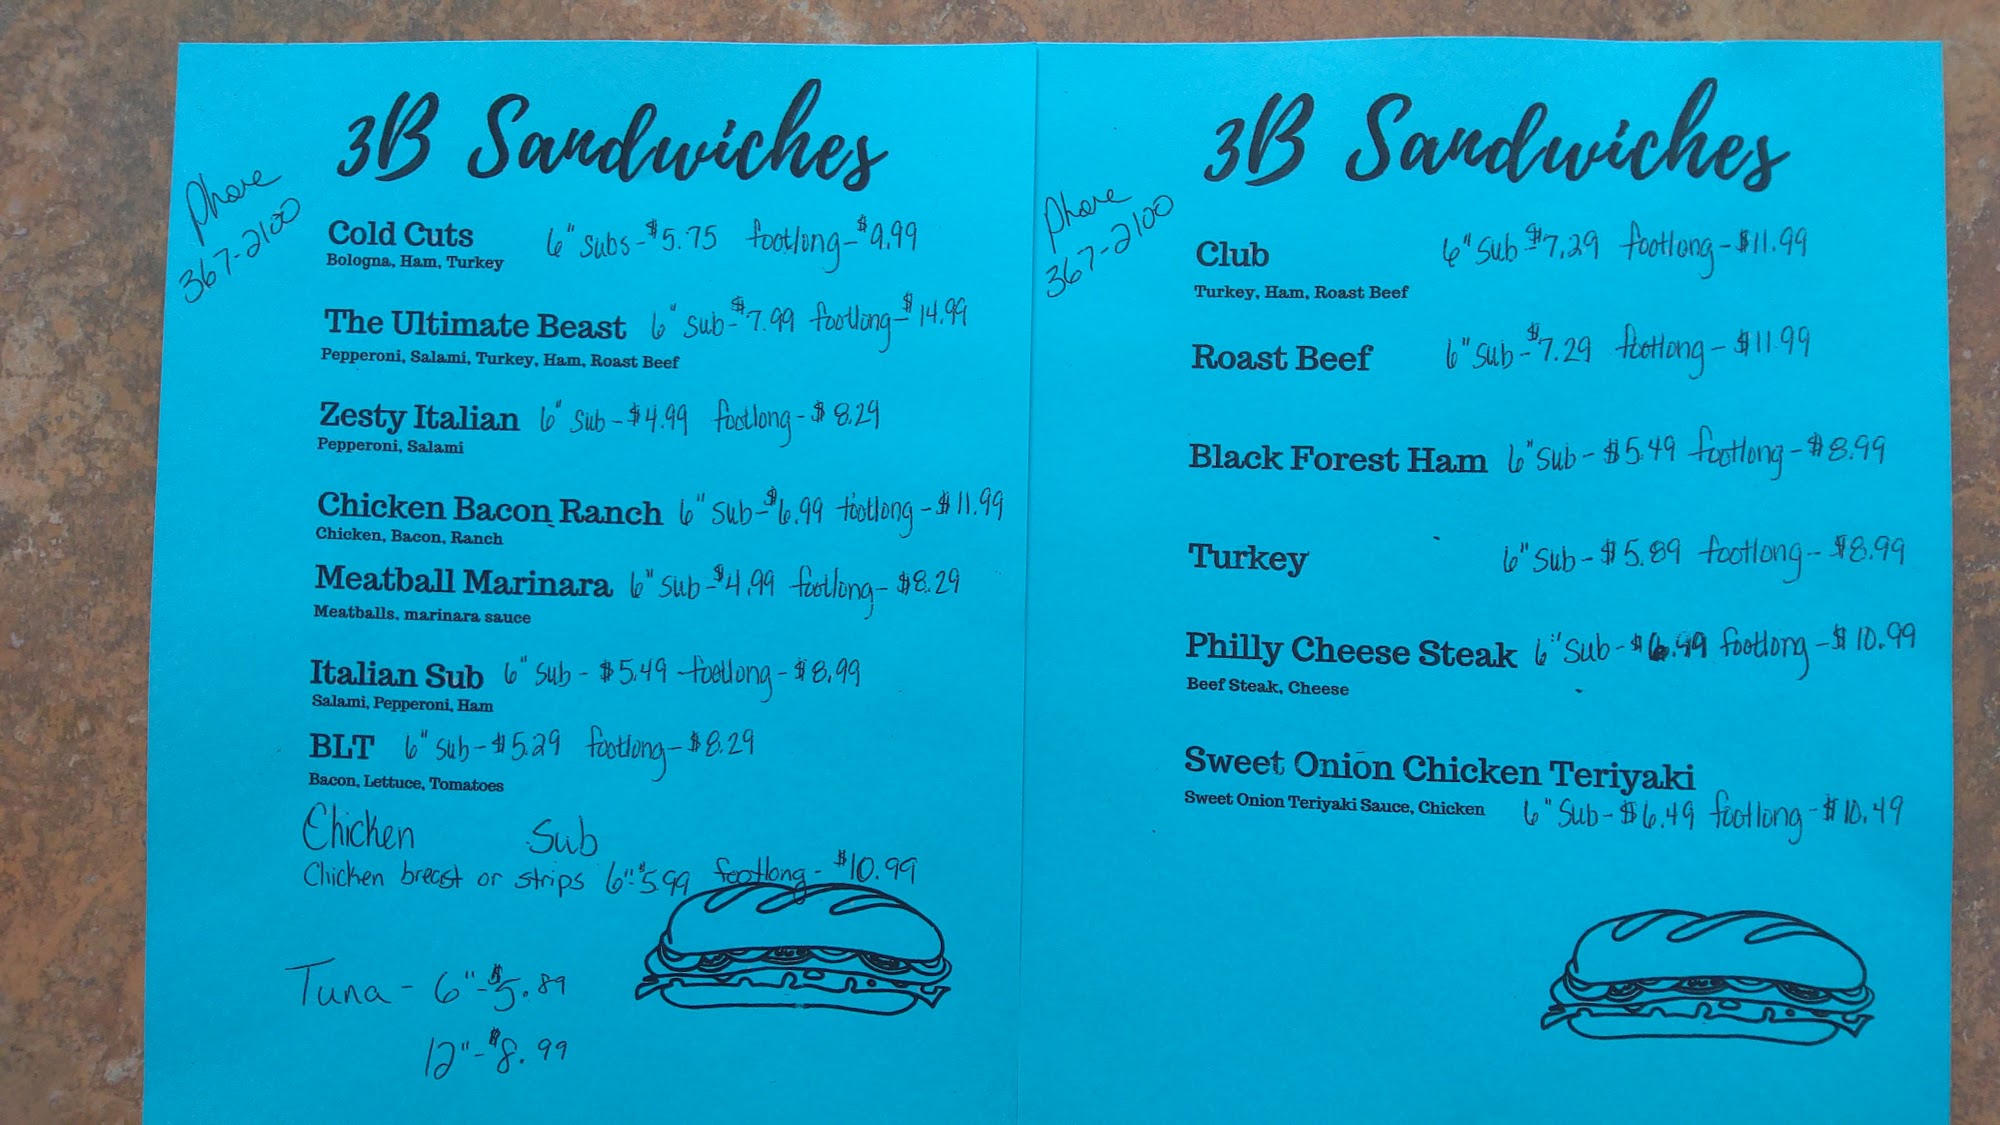 3B Sandwiches
Phone
367-2100
Cold Cuts 6" subs - $5.75 footlong - $9.99
Bologna, Ham, Turkey
The Ultimate Beast 6" sub - $7.99 footlong - $14.99
Pepperoni, Salami, Turkey, Ham, Roast Beef
Zesty Italian 6" sub - $4.99 footlong - $8.29
Pepperoni, Salami
Chicken Bacon Ranch 6" sub - $6.99 footlong - $11.99
Chicken, Bacon, Ranch
Meatball Marinara 6" sub - $4.99 footlong - $8.29
Meatballs, marinara sauce
Italian Sub 6" sub - $5.49 footlong - $8.99
Salami, Pepperoni, Ham
BLT 6" sub - $5.29 footlong - $8.29
Bacon, Lettuce, Tomatoes
Chicken Sub
Chicken breast or strips 6" - $5.99 footlong - $10.99
Tuna - 6" - $5.89
12" - $8.99
3B Sandwiches
Phone
367-2100
Club 6" sub - $7.29 footlong - $11.99
Turkey, Ham, Roast Beef
Roast Beef 6" sub - $7.29 footlong - $11.99
Black Forest Ham 6" sub - $5.49 footlong - $8.99
Turkey 6" sub - $5.89 footlong - $8.99
Philly Cheese Steak 6" sub - footlong - $10.99
Beef Steak, Cheese
Sweet Onion Chicken Teriyaki
Sweet Onion Teriyaki Sauce, Chicken 6" sub - $6.49 footlong - $10.49